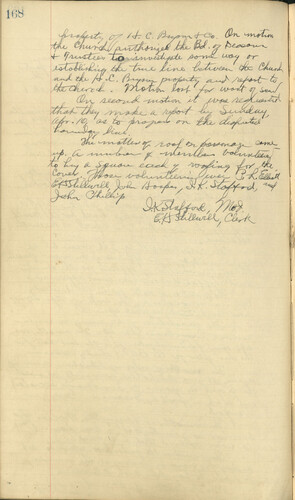 168
property of H. C. Bryan & Co. On motion
the Church authorized the Bd. of Deacons
& Trustees to investigate some way or
establishing the true line between the Church
and the H.C. Bryan property and report to
the church. Motion lost for want of
On second motion it was requested
that they make a report by Sunday,
Apr. 19 as to progress on the disputed
boundary line.
The matter of roof on parsonage came
up. A number of members volunteered
to buy a square each of roofing for the
Those volunteering were Elliott
E.G. Stillwell, John Hooper, J.K. Stafford, and
John Philip
J.K. Stafford, Mod.
E.G. Stillwell, Clerk